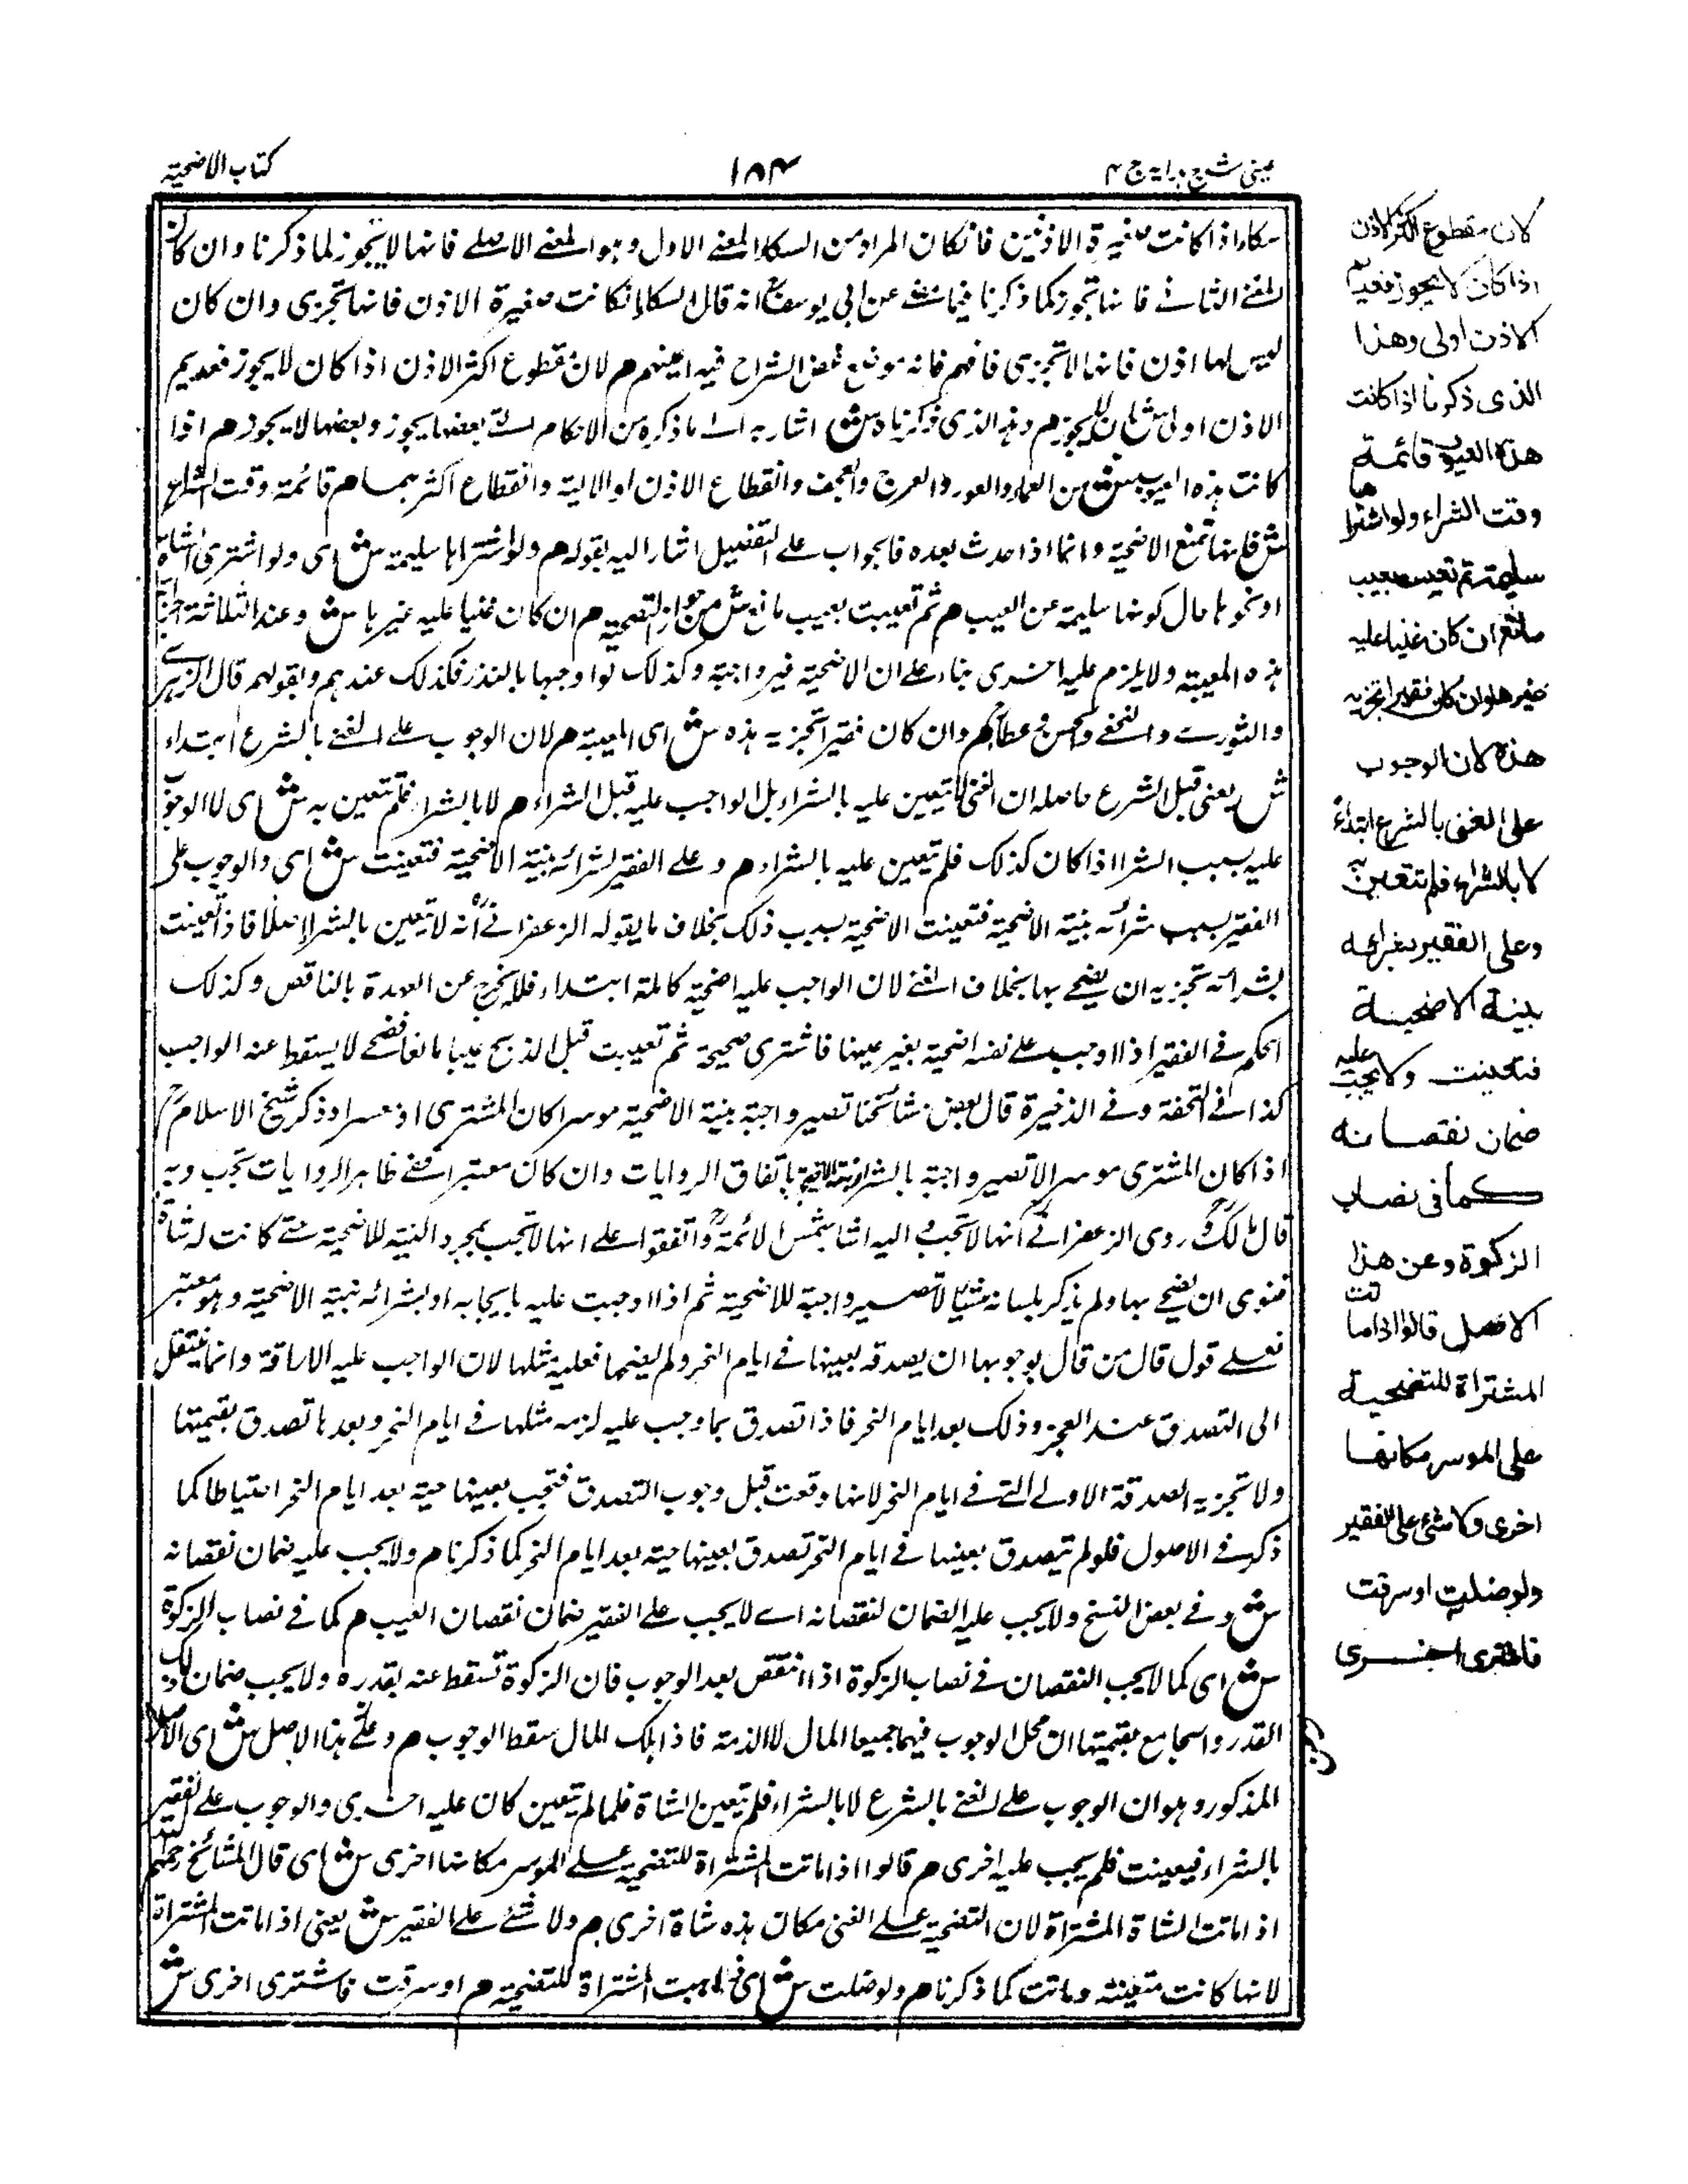 عينى شرح هداية ج ٤
١٨٤
كتاب الاضحية
سكاء اذا كانت صغيرة الاذنين فانكان المراد من السكاء المعنى الاول وهو المعنى الاصلى فانها لا يجوز لما ذكرنا وان كان
المعنى الثانى فانها تجوز كما ذكرنا فيما عن ابى يوسف انه قال السكاء انكانت صغيرة الاذن فانها تجزى وان كان
ليس لها اذن فانها لا تجزى فافهم فانه موضع بعض الشراح فيه م لان مقطوع اكثر الاذن اذا كان لا يجوز فعديم
الاذن اولى ش م وهذا الذى ذكرناه ش اشار به الى ما ذكره من الاحكام التى بعضها يجوز وبعضها لا يجوز م اذا
كانت هذه العيوب ش من العماء والعور والعرج والعجف وانقطاع الاذن او الالية وانقطاع اكثرهما م قائمة وقت الشراء
ش فانها تمنع الاضحية وانما اذا حدث بعده فالجواب على التفصيل اشار اليه بقوله م ولو اشتراها سليمة ش اى ولو اشترى الشاة
او نحوها حال كونها سليمة عن العيب م ثم تعيبت بعيب مانع ش من جواز التضحية م ان كان غنيا عليه غيرها ش وعند الثلاثة
هذه المعيبة ولا يلزم عليه اخرى بناء على ان الاضحية غير واجبة وكذلك لو اوجبها بالنذر فكذلك عندهم وبقولهم قال الزهرى
والثورى والنخعى والحسن وعطاء م وان كان فقيرا تجزيه هذه ش اى المعيبة م لان الوجوب على الغنى بالشرع ابتداء
ش يعنى قبل الشرع حاصله ان الغنى لا يتعين عليه بالشراء بل الواجب عليه قبل الشراء م لا بالشراء فلم تتعين به ش اى لا الوجوب
عليه بسبب الشراء اذا كان كذلك فلم تتعين عليه بالشراء م وعلى الفقير لشرائه بنية الاضحية فتعينت ش اى والوجوب على
الفقير بسبب شرائه بنية الاضحية فتعينت الاضحية بسبب ذلك بخلاف ما يقوله الزعفرانى انه لا تتعين بالشراء اصلا فاذا تعينت
بشرائه تجزيه ان يضحى بها بخلاف الغنى لان الواجب عليه اضحية كاملة ابتداء فلا يخرج عن العهدة بالناقص وكذلك
الحكم فى الفقير اذا اوجب على نفسه اضحية بغير عينها فاشترى صحيحة ثم تعيبت قبل الذبح عيبا مانعا فضحى لا يسقط عنه الواجب
كذا فى التحفة وفى الذخيرة قال بعض مشائخنا تصير واجبة بنية الاضحية موسرا كان المشترى او معسرا وذكر شيخ الاسلام
اذا كان المشترى موسرا لا تصير واجبة بالشراء بنية الاضحية باتفاق الروايات وان كان معسرا ففى ظاهر الروايات تجب وبه
قال مالك وروى الزعفرانى انها لا تجب اليه اشار شمس الائمة واتفقوا على انها لا تجب بمجرد النية للاضحية حتى كانت له شاة
فنوى ان يضحى بها ولم يذكر بلسانه شيئا لا تصير واجبة للاضحية ثم اذا اوجبت عليه بايجابه او بشرائه بنية الاضحية وهو معسر
فعلى قول قال من قال بوجوبها ان يصدقه بعينها فى ايام النحر ولم يضحها فعليه مثلها لان الواجب عليه الاراقة وانما ينتقل
الى التصدق عند العجز وذلك بعد ايام النحر فاذا تصدق بما وجب عليه لزمه مثلها فى ايام النحر وبعدها تصدق بقيمتها
ولا تجزيه الصدقة الاولى التى فى ايام النحر لانها وقعت قبل وجوب التصدق فتجب بعينها حية بعد ايام النحر احتياطا كما
ذكر فى الاصول فلو لم يتصدق بعينها فى ايام النحر تصدق بعينها حية بعد ايام النحر كما ذكرنا م ولا يجب عليه ضمان نقصانه
ش وفى بعض النسخ ولا يجب عليه الضمان لنقصانه اى لا يجب على الفقير ضمان نقصان العيب م كما فى نصاب الزكوة
ش اى كما لا يجب النقصان فى نصاب الزكوة اذا انتقص بعد الوجوب فان الزكوة تسقط عنه بقدره ولا يجب ضمان ذلك
القدر ان محل الوجوب فيهما جميعا المال لا الذمة فاذا هلك المال سقط الوجوب م وعلى هذا الاصل ش اى الاصل
المذكور وهو ان الوجوب على الغنى بالشرع لا بالشراء فلم تتعين الشاة فلما لم تتعين كان عليه اخرى والوجوب على الفقير
بالشراء فيعينت فلم يجب عليه اخرى م قالوا اذا ماتت المشتراة للتضحية على الموسر مكانها اخرى ش اى قال المشائخ رحمهم الله
اذا ماتت الشاة المشتراة لان التضحية على الغنى مكان هذه شاة اخرى م ولا شئ على الفقير ش يعنى اذا ماتت المشتراة
لانها كانت متعينة وماتت كما ذكرنا م ولو ضلت ش اى المشتراة للتضحية م او سرقت فاشترى اخرى ش
لان مقطوع اكثر الاذن
اذا كان لا يجوز فعديم
الاذن اولى وهذا
الذى ذكرنا اذا كانت
هذه العيوب قائمة
وقت الشراء ولو اشتراها
سليمة ثم تعيبت بعيب
مانع ان كان غنيا عليه
غيرها وان كان فقيرا تجزيه
هذه لان الوجوب
على الغنى بالشرع ابتداءً
لا بالشراء فلم تتعين به
وعلى الفقير بشرائه
بنية الاضحية
فتعينت ولا يجب عليه
ضمان نقصانه
كما فى نصاب
الزكوة وعن هذا
الاصل قالوا اذا ماتت
المشتراة للتضحية
على الموسر مكانها
اخرى ولا شئ على الفقير
ولو ضلت او سرقت
فاشترى اخرى